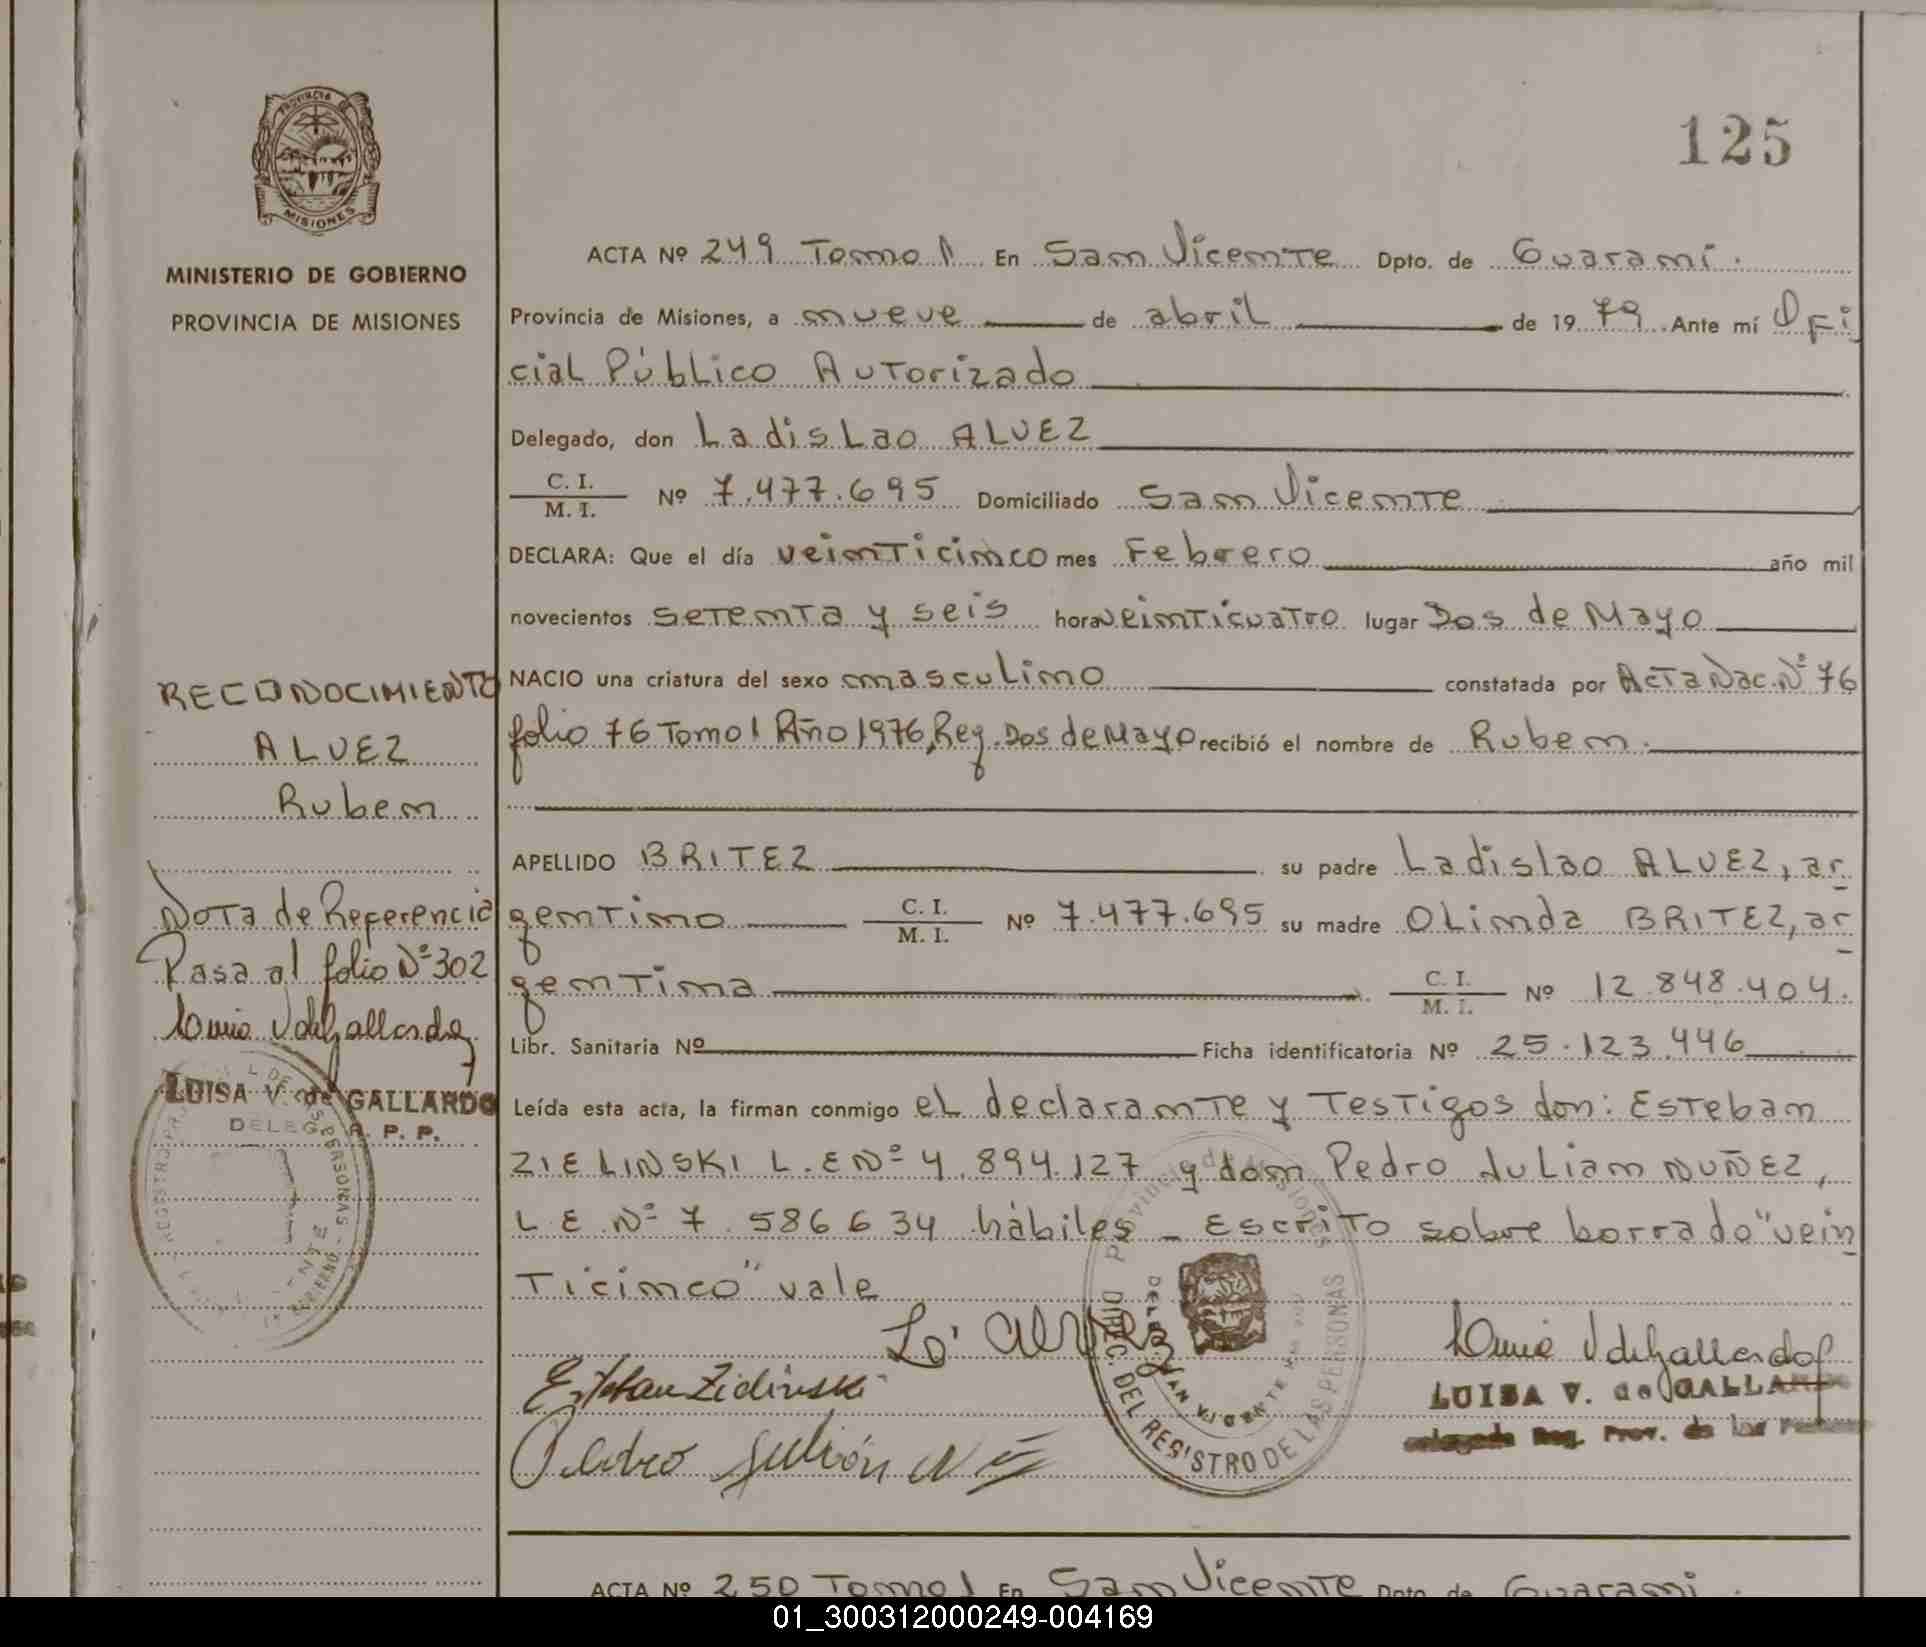 PROVINCIA DE
MISIONES
MINISTERIO DE GOBIERNO
PROVINCIA DE MISIONES
125
ACTA Nº 249 Tomo 1 En San Vicente Dpto. de Guaraní.
Provincia de Misiones, a nueve de abril de 1979 Ante mí Ofi
cial Público Autorizado
Delegado, don Ladislao ALVEZ
C. I.
M. I. Nº 7.477.695 Domiciliado San Vicente
DECLARA: Que el día veinticinco mes Febrero año mil
novecientos setenta y seis hora veinticuatro lugar Dos de Mayo
NACIO una criatura del sexo masculino constatada por Acta Nac. Nº 76
folio 76 Tomo 1 Año 1976, Reg. Dos de Mayo recibió el nombre de Ruben.
APELLIDO BRITEZ su padre Ladislao ALVEZ, ar
gentino C. I. M. I. Nº 7.477.695 su madre OLinda BRITEZ, ar
gentina C. I. M. I. Nº 12.848.404.
Libr. Sanitaria Nº Ficha identificatoria Nº 25.123.446
Leída esta acta, la firman conmigo el declarante y Testigos don: Esteban
ZIELINSKI L.E Nº 4.894.127 y don Pedro Julian NUÑEZ,
L E Nº 7.586634 hábiles - Escrito sobre borrado "vein
Ticinco" vale
RECONOCIMIENTO
ALVEZ
Ruben
Nota de Referencia
Pasa al folio Nº 302
Luisa V de Gallardo
LUISA V. de GALLARDO
DELEG R. P. P.
Lo Alvez
Esteban Zielinski
Pedro Julián Nuñez
Provincia de Misiones
DIREC. DEL REGISTRO DE LAS PERSONAS
SAN VICENTE
Luisa V de Gallardo
LUISA V. de GALLARDO
Delegada Reg. Prov. de las Personas
ACTA Nº 250 Tomo 1 En San Vicente Dpto. de Guaraní.
01_300312000249-004169